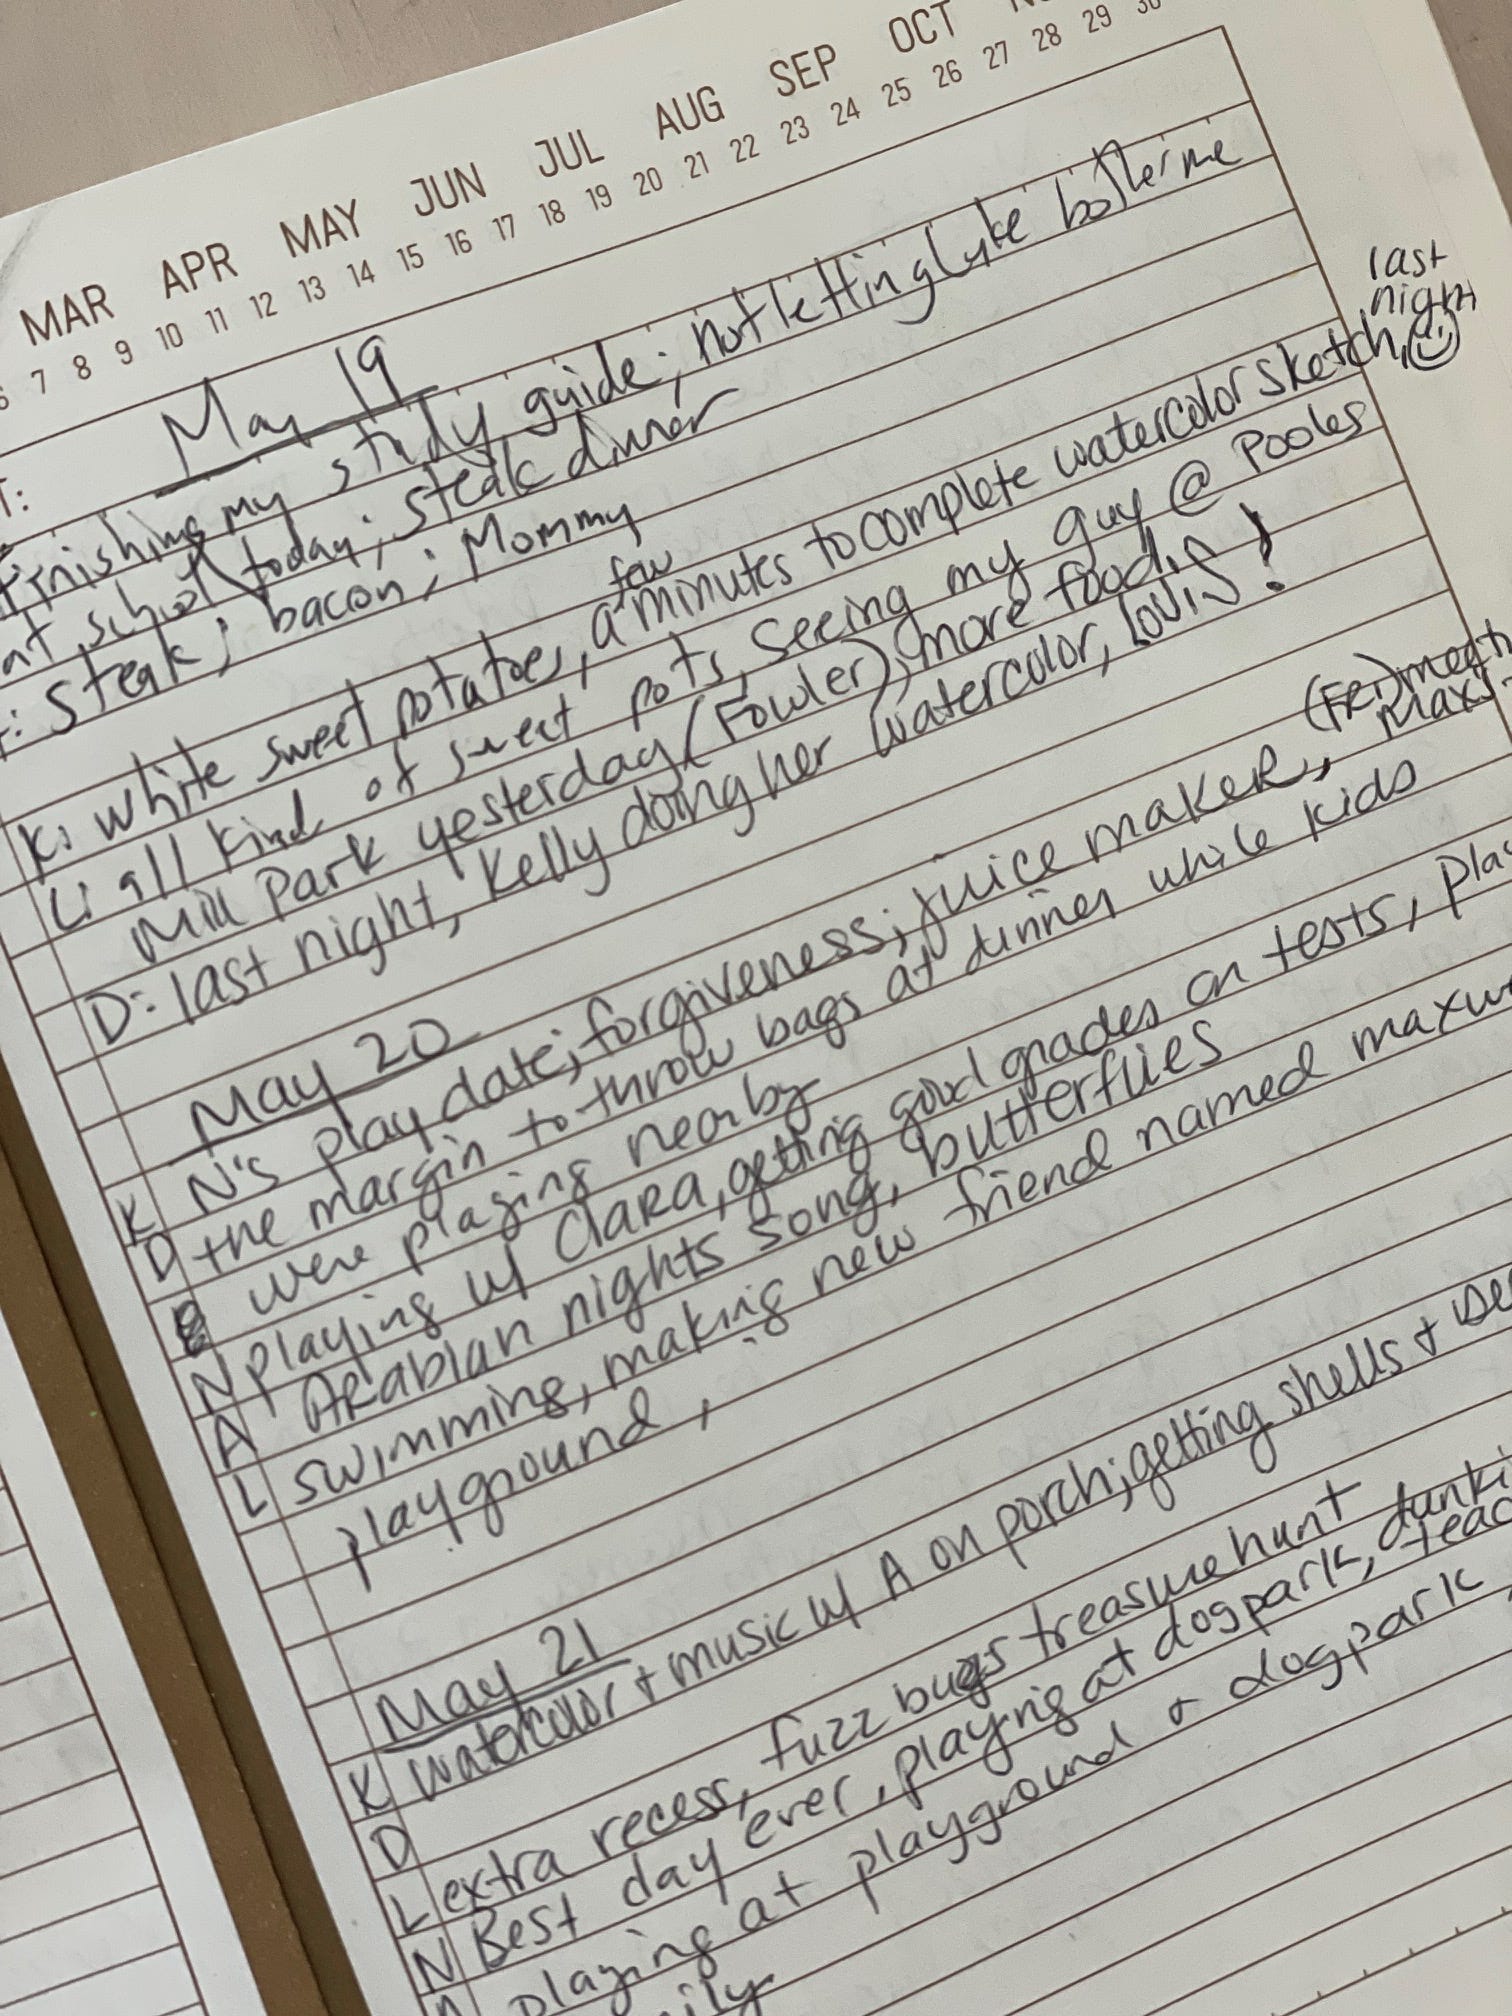 MAR APR MAY JUN JUL AUG SEP OCT
7 8 9 10 11 12 13 14 15 16 17 18 19 20 21 22 23 24 25 26 27 28 29 30
T:
May 19
finishing my study guide; not letting Luke bother me
at school today; steak dinner
: steak; bacon; Mommy
K: white sweet potatoes, a few minutes to complete watercolor sketch, last night ☺
L: all kind of sweet pots, seeing my guy @ Pooles
Mill Park yesterday (Fowler), more food,
D: last night, Kelly doing her watercolor, LOUIS!
May 20
K N's play date; forgiveness; juice maker, (FRI)
D the margin to throw bags at dinner while kids
were playing nearby
N playing w/ Clara, getting good grades on tests,
A Arabian nights song, butterflies
L swimming, making new friend named
playground,
May 21
K watercolor + music w/ A on porch; getting shells +
D
L extra recess, fuzz bugs treasure hunt
N Best day ever, playing at dogpark,
playing at playground + dogpark